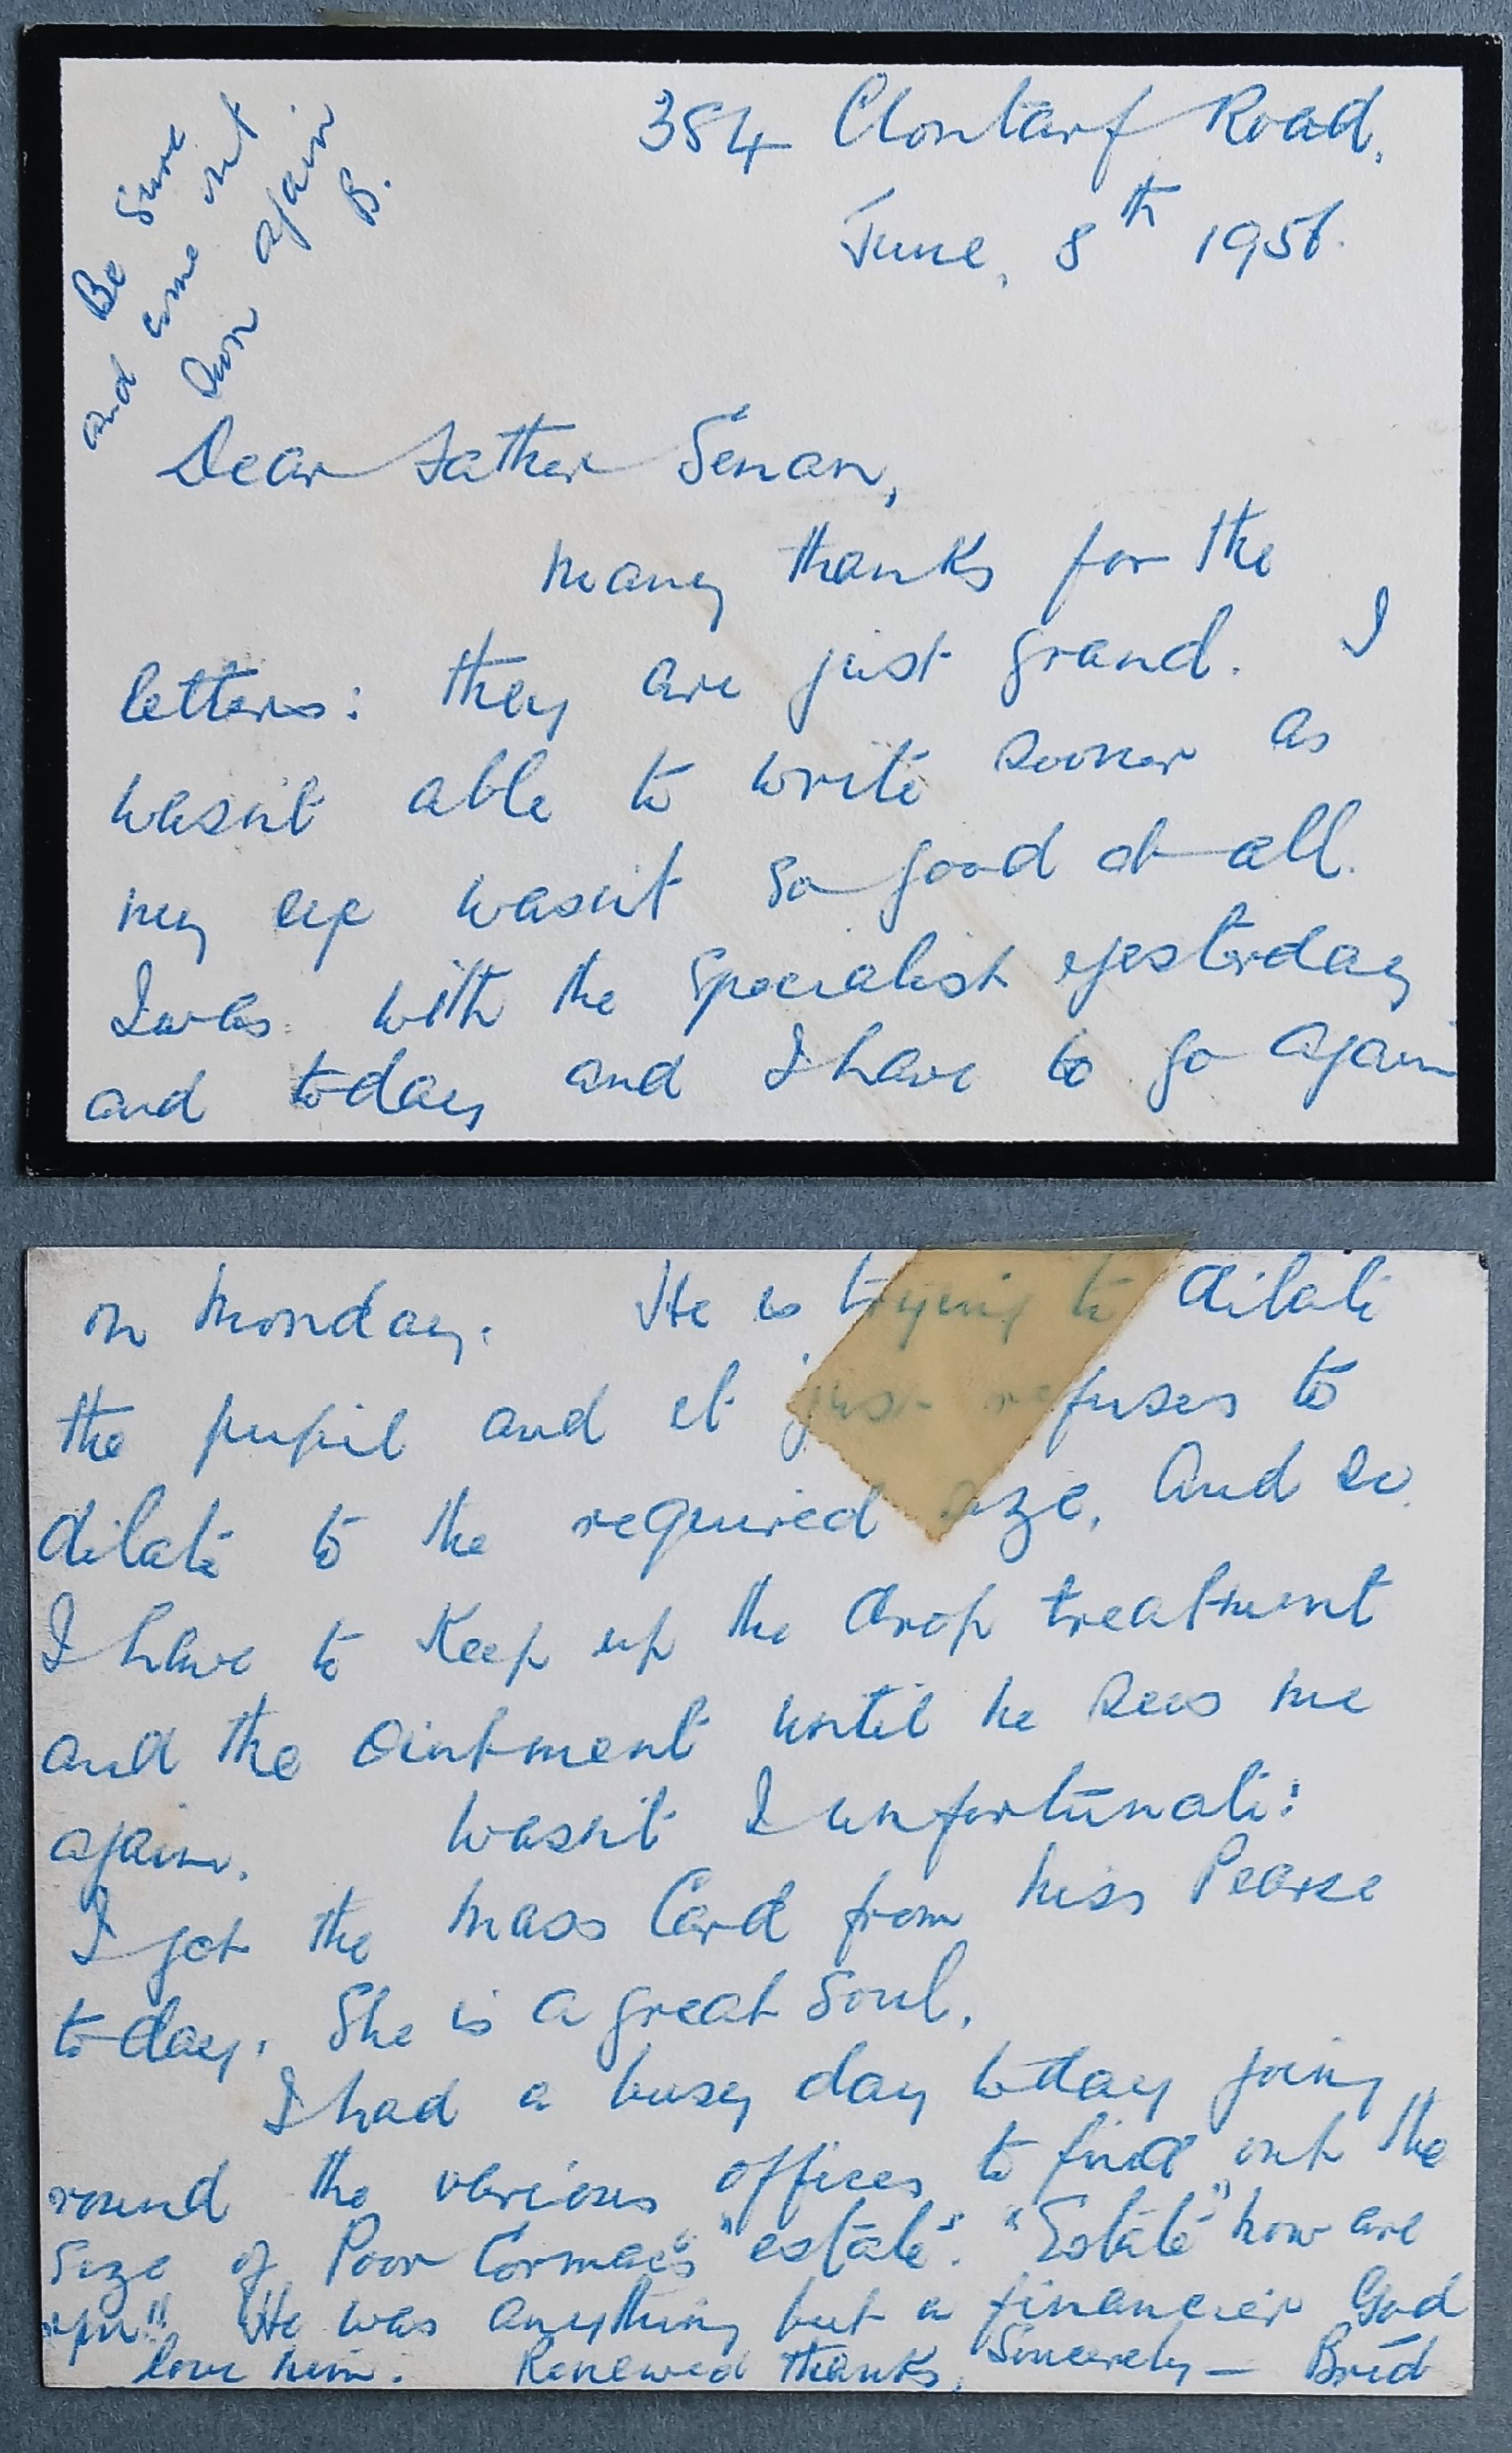 384 Clontarf Road,
June, 8th 1956.
Be sure
and come out
soon again
B.
Dear Father Senan,
Many thanks for the
letters: they are just grand. I
wasn't able to write sooner as
my eye wasn't so good at all.
I was with the specialist yesterday
and today and I have to go again
on Monday. He is trying to dilate
the pupil and it just refuses to
dilate to the required size, and so
I have to keep up the drop treatment
and the ointment until he sees me
again. Wasn't I unfortunate!
I got the Mass Card from Miss Pearse
today. She is a great soul.
I had a busy day today going
round the various offices to find out the
size of Poor Cormac's "estate". "Estate" how are
you"! He was anything but a financier God
love him. Renewed thanks, Sincerely — Bríd